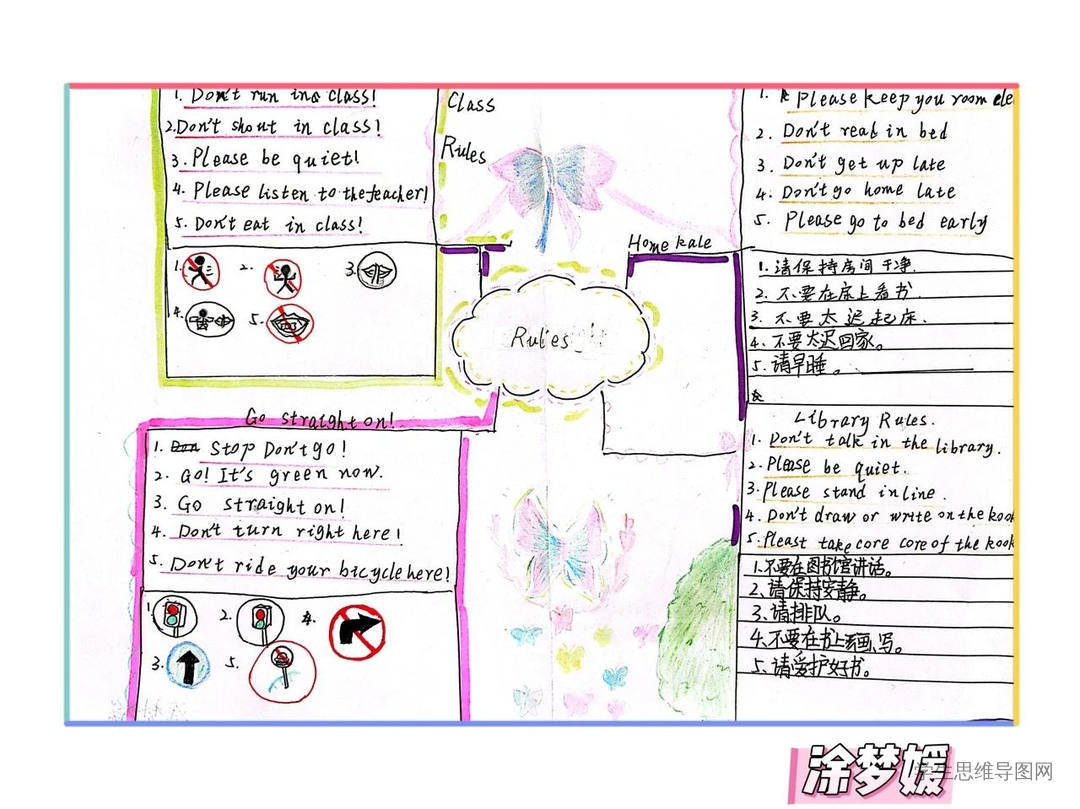 1. Don't run in class!
2. Don't shout in class!
3. Please be quiet!
4. Please listen to the teacher!
5. Don't eat in class!
1.
2.
3.
4.
5.
Class
Rules
Rules
Home Rule
1. Please keep you room cle
2. Don't read in bed
3. Don't get up late
4. Don't go home late
5. Please go to bed early
1. 请保持房间干净.
2. 不要在床上看书.
3. 不要太迟起床.
4. 不要太迟回家。
5. 请早睡。
Go straight on!
1. Stop Don't go!
2. Go! It's green now.
3. Go straight on!
4. Don't turn right here!
5. Don't ride your bicycle here!
1.
2.
4.
3.
5.
Library Rules.
1. Don't talk in the library.
2. Please be quiet.
3. Please stand in line.
4. Don't draw or write on the kook
5. Pleast take core core of the kook
1. 不要在图书馆讲话。
2. 请保持安静。
3. 请排队。
4. 不要在书上画,写。
5. 请爱护好书。
涂梦媛
学生思维导图网